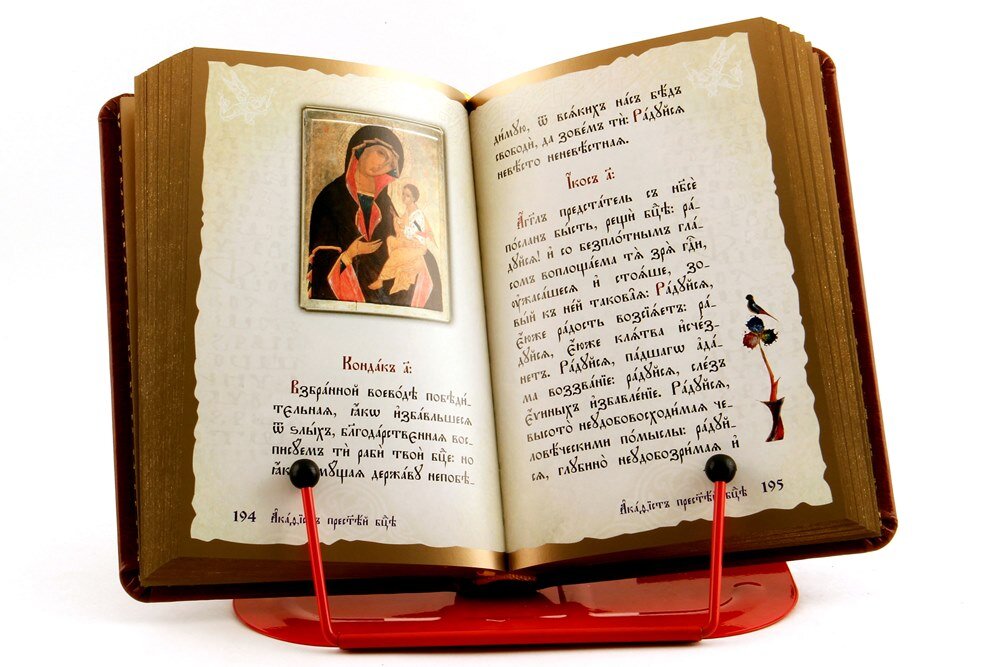 Конда́къ а҃:
Взбра́нной воево́дѣ побѣди́-
тельная, ꙗ҆́кѡ и҆зба́вльшеся
ѿ ѕлы́хъ, бл҃года́рственная вос-
писуемъ тѝ раби̑ твоѝ бц҃е: но
и҆мꙋщая держа́вꙋ непобѣ-
194 А҆ка́ѳїстъ прест҃ѣ́й бц҃ѣ
ди́мꙋю, ѿ вся́кихъ на́съ бѣ́дъ
свободѝ, да зове́мъ тѝ: Ра́дꙋйся
невѣ́сто неневѣ́стная.
І҆́косъ а҃:
А҆́гг҃лъ предста́тель съ нб҃сѐ
по́сланъ бы́сть, рещѝ бц҃ѣ: ра́-
дꙋйся! и҆ со безпло́тнымъ гла́-
сомъ воплоща́ема тѧ̀ зрѧ̀ гд҃и,
ᲂу҆жаса́шеся и҆ стоѧ́ше, зо-
вы́й къ не́й такова̑я: Ра́дꙋйся,
Е҆́юже ра́дость возсїѧ́етъ: ра́-
дꙋйся, Е҆́юже клѧ́тва и҆сче́з-
нетъ. Ра́дꙋйся, па́дшагѡ а҆да́-
ма воззва́нїе: ра́дꙋйся, сле́зъ
Е҆́ѵиныхъ и҆збавле́нїе. Ра́дꙋйся,
высото̀ неꙋдобовосходи́мая че-
ловѣ́ческими по́мыслы: ра́дꙋй-
ся, глꙋбино̀ неꙋдобозри́мая и҆
А҆ка́ѳїстъ прест҃ѣ́й бц҃ѣ 195